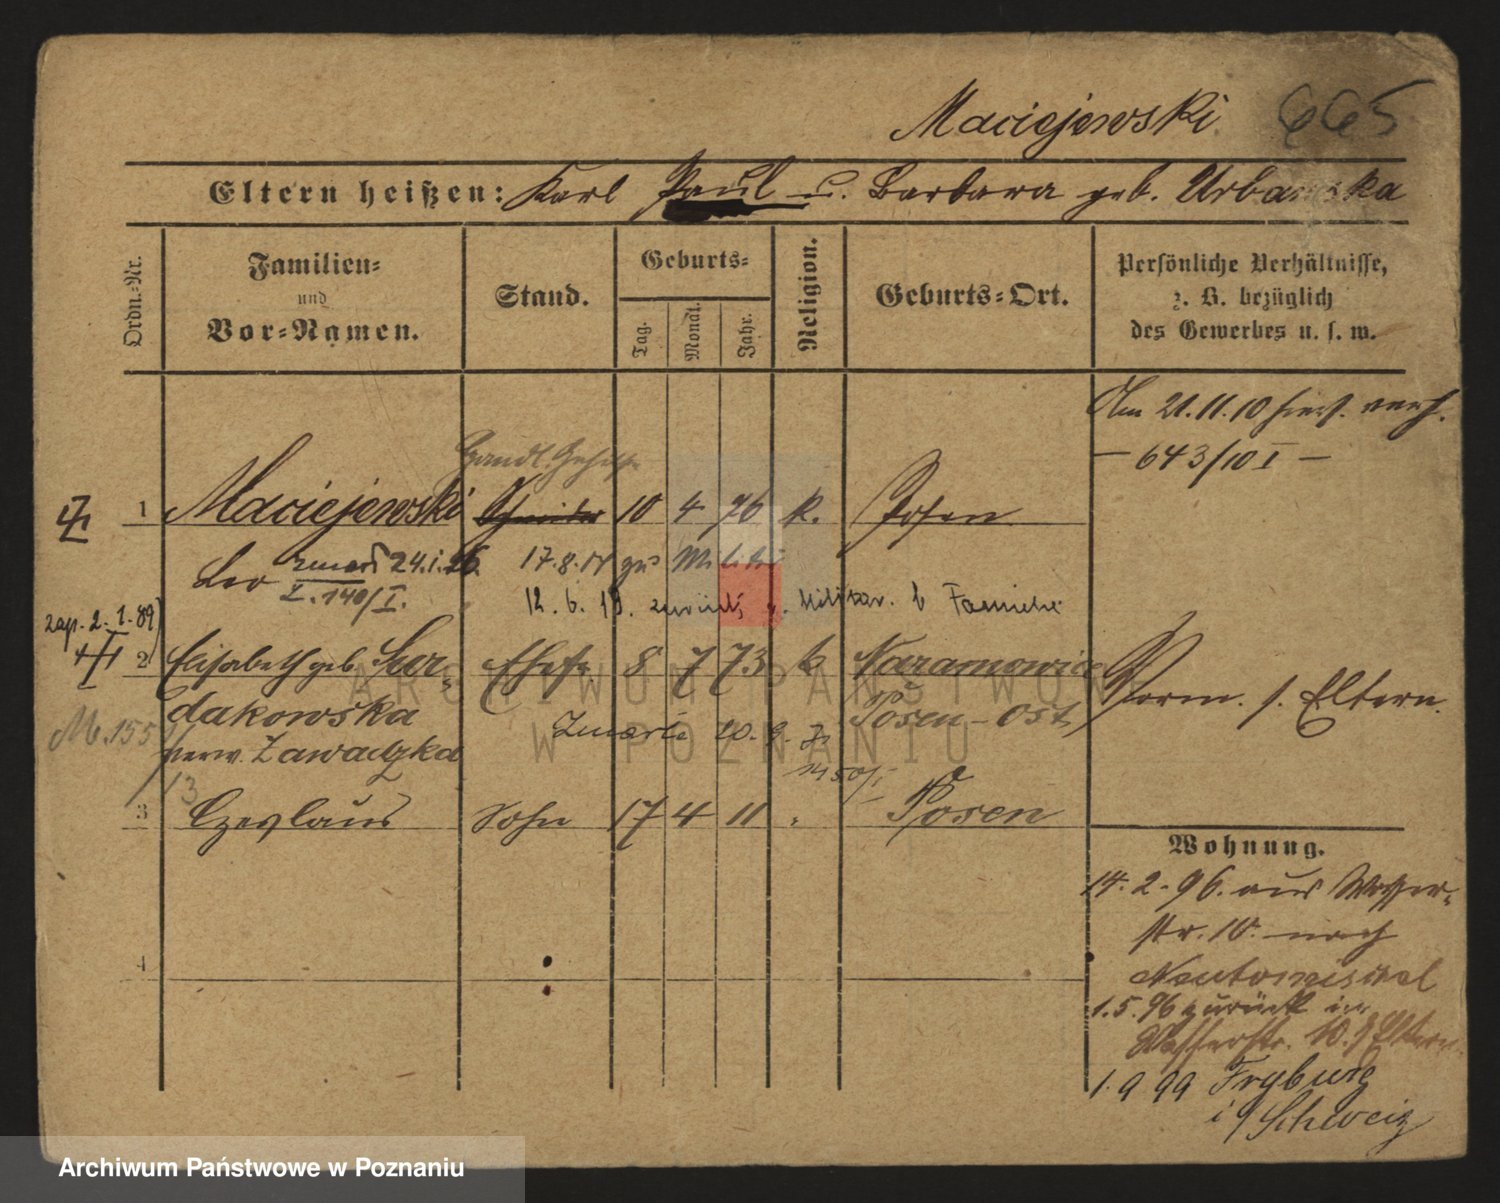 Maciejewski 665
Eltern heißen: Karl Paul u. Barbara geb. Urbanska
Ordn.-Nr.
Familien-
und
Vor-Namen.
Stand.
Geburts-
Tag.
Monat.
Jahr.
Religion.
Geburts-Ort.
Persönliche Verhältnisse,
z. B. bezüglich
des Gewerbes u. s. w.
Am 21.11.10 hier verh.
— 643/10 I —
Handl. Gehilfe
1 Maciejewski Schneider 10 4 76 k. Posen
Leo zmarł 24.1.26.
I. 140/I.
17.8.17 zus Militär
12.6.18. zurück v. Militär. b Familie
zap. 2.1.89
2 Elisabeth geb. Sur-
dakowska
verw. Zawadzka
Ehefr. 8 7 73 k Naramowice
Posen-Ost
M. 155
13
Zmarła 20.9.
Verm. s. Eltern.
3 Czeslaus Sohn 17 4 11 " Posen
4
Wohnung.
14.2.96. aus Wasser-
str. 10. nach
Neutomischel
1.5.96 zurück in
Wasserstr. 10. b Eltern
1.9 99 Fryburg
i/Schweiz
ARCHIWUM PAŃSTWOWE
W POZNANIU
Archiwum Państwowe w Poznaniu